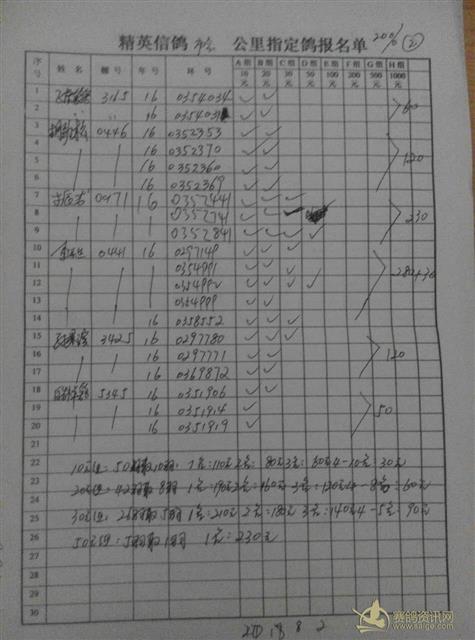 精英信鸽 公里指定鸽报名单 200% ②
序号 姓名 棚号 年号 环号 A组10元 B组20元 C组30元 D组50元 E组100元 F组200元 G组500元 H组1000元
1 3165 16 0354034 ✓ ✓
2 16 ✓ ✓ 60
3 0446 16 0352353 ✓ ✓
4 16 0352370 ✓ ✓
5 16 0352360 ✓ ✓ 120
6 16 0352369 ✓ ✓
7 0971 16 0352441 ✓ ✓ ✓
8 0352741 ✓ ✓ ✓ 230
9 0352841 ✓ ✓ ✓ ✓
10 0441 16 0297149 ✓ ✓
11 0354991 ✓ ✓ ✓
12 ✓ ✓ ✓ ✓ 280+30
13 ✓ ✓ ✓
14 16 0358552 ✓ ✓ ✓
15 3425 16 0297780 ✓ ✓ ✓
16 16 0297771 ✓ ✓ 120
17 16 0369872 ✓ ✓
18 5345 16 0351906 ✓ ✓
19 16 0351914 ✓ 50
20 16 0351919 ✓
21
22 10元组:50羽取10羽: 1名:110元2名:80元3名:60元4-10名:30元
23 20元组:42羽取8羽 1名:190元2名:160元 3名:120元4-8名:60元
24
25 30元组:26羽取5羽 1名:210元 2名:180元 3名:140元4-5名:90元
26 50元组:5羽取1羽 1名:230元
27
28
29
30
2018 8 2
赛鸽资讯网
www.saige.com